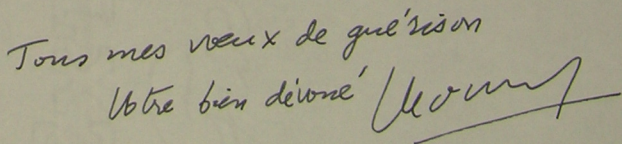 Tous mes vœux de guérison
Votre bien dévoué